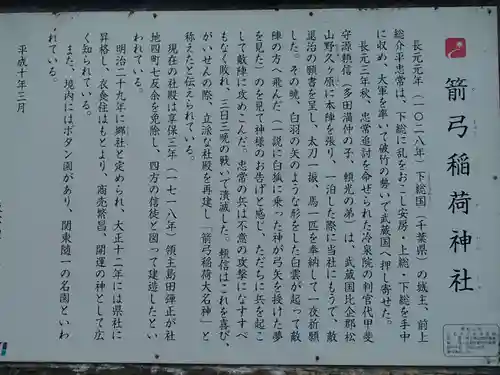 箭弓稲荷神社
長元元年(一〇二八年)下総国(千葉県)の城主、前上
総介平忠常は、下総に乱をおこし安房・上総・下総を手中
に収め、大軍を率いて破竹の勢いで武蔵国へ押し寄せた。
長元三年秋、忠常追討を命ぜられた冷泉院の判官代甲斐
守源頼信(多田満仲の子、頼光の弟)は、武蔵国比企郡松
山野久ヶ原に本陣を張り、一泊した際に当社にもうで、敵
退治の願書を呈し、太刀一振、馬一匹を奉納して一夜祈願
した。その暁、白羽の矢のような形をした白雲が起って敵
陣の方へ飛んだ(一説に白狐に乗った神が弓矢を授けた夢
を見た)のを見て神様のお告げと感じ、ただちに兵を起こ
して敵陣に攻めこんだ。忠常の兵は不意の攻撃になすすべ
もなく敗れ、三日三晩の戦いで潰滅した。頼信はこれを喜び、
がいせんの際、立派な社殿を再建し「箭弓稲荷大名神」と
称えたと伝えられている。
現在の社殿は享保三年(一七一八年)領主島田弾正が社
地四町七反余を免除し、四方の信徒と図って建造したとい
われている。
明治二十九年に郷社と定められ、大正十二年には県社に
昇格し、衣食住はもとより、商売繁昌、開運の神として広
く知られている。
また、境内にはボタン園があり、関東随一の名園といわ
れている。
平成十年三月